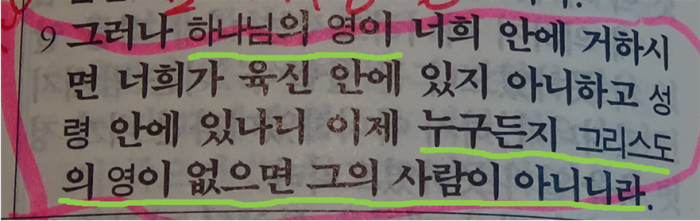 9 그러나 하나님의 영이 너희 안에 거하시
면 너희가 육신 안에 있지 아니하고 성
령 안에 있나니 이제 누구든지 그리스도
의 영이 없으면 그의 사람이 아니니라.